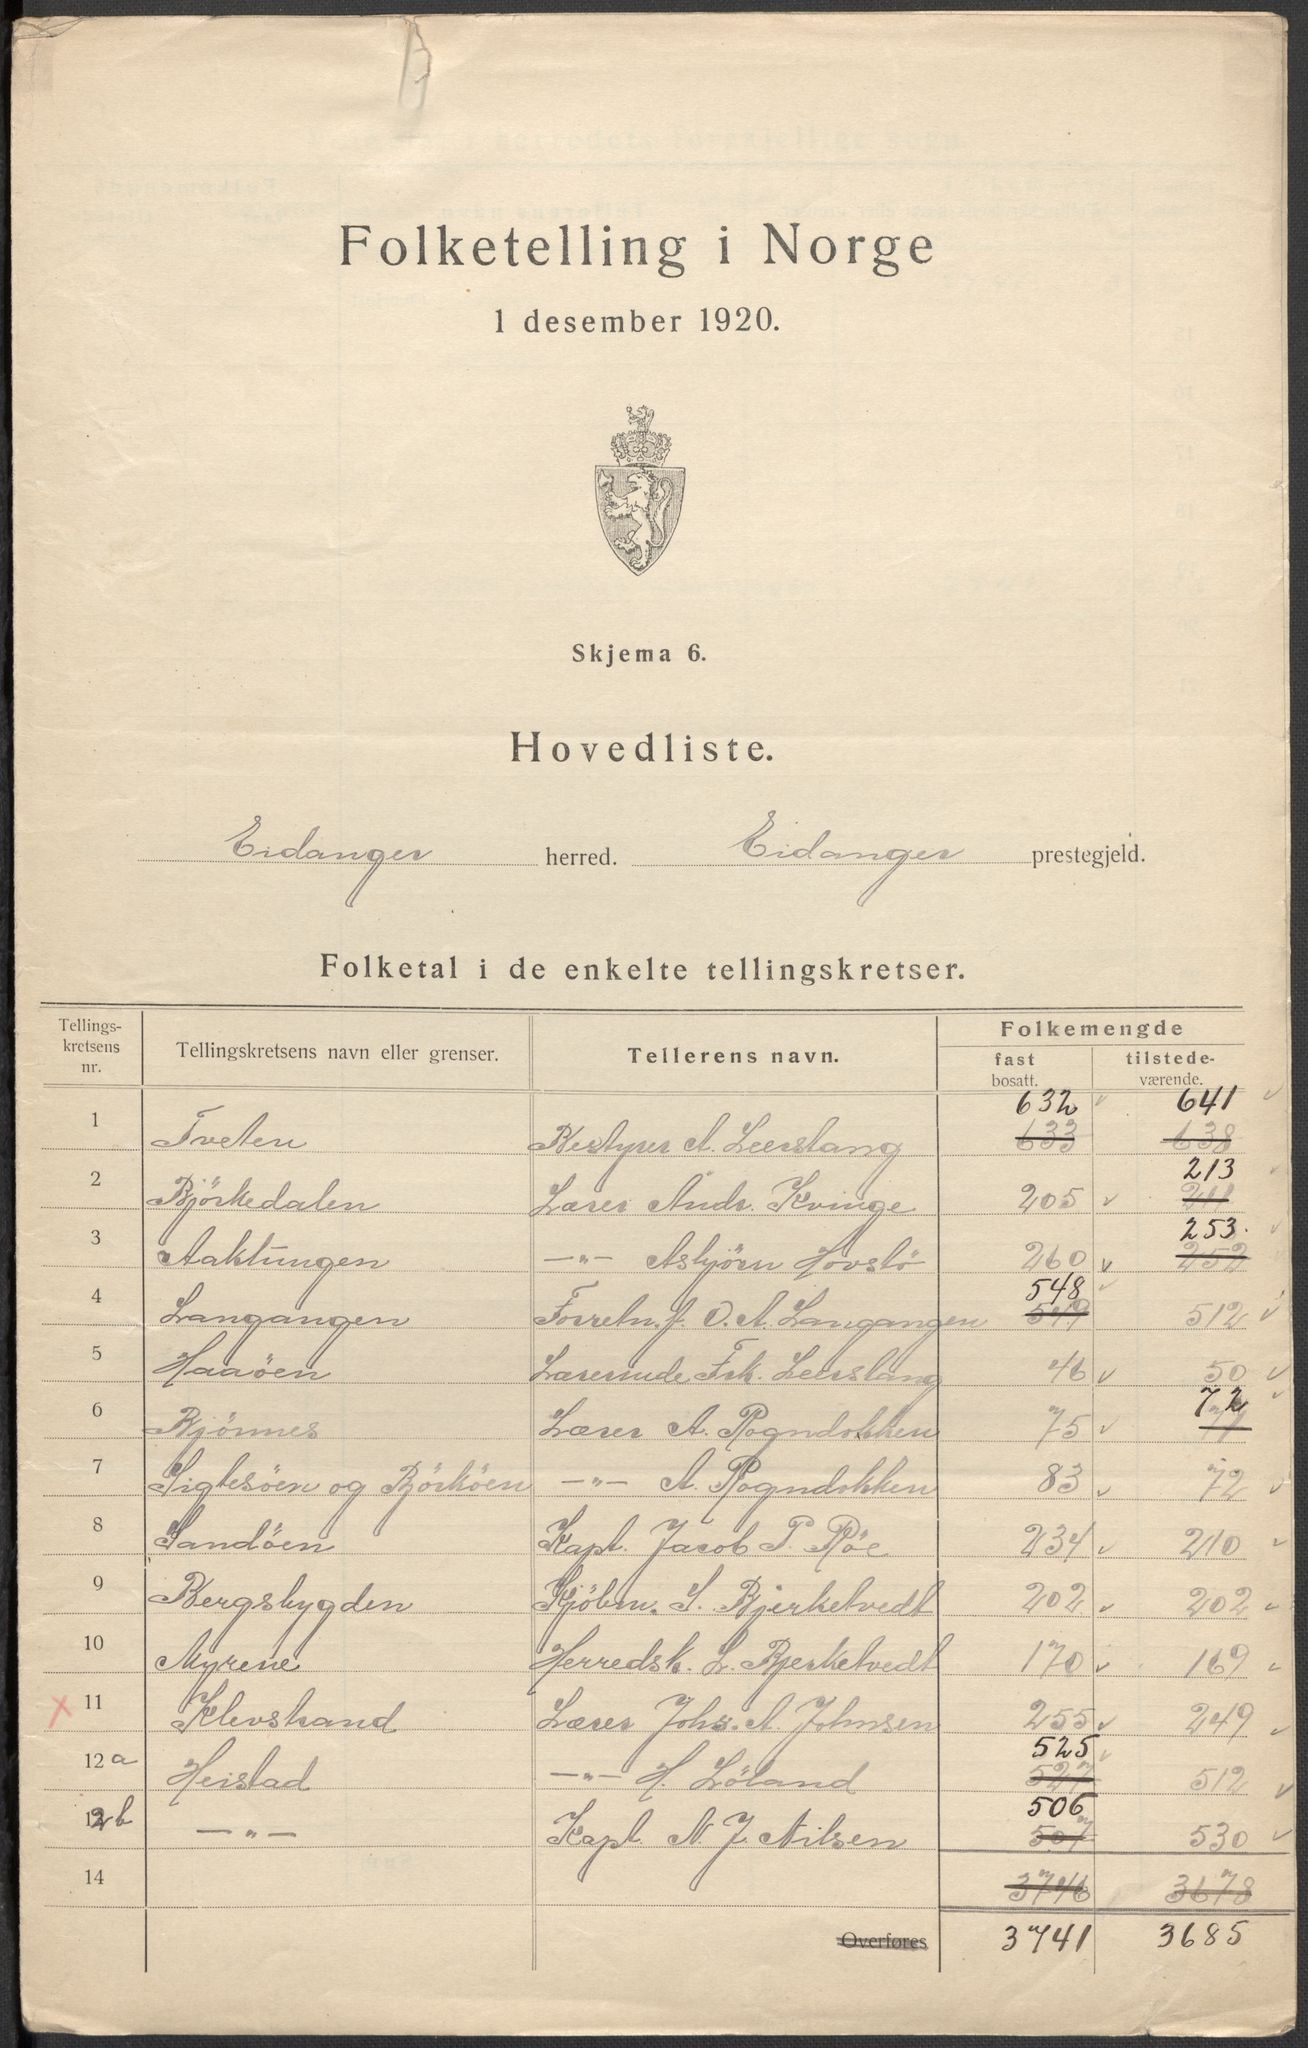 Folketelling i Norge
1 desember 1920.
Skjema 6.
Hovedliste.
Eidanger herred. Eidanger prestegjeld.
Folketal i de enkelte tellingskretser.
Tellings-kretsens nr. Tellingskretsens navn eller grenser. Tellerens navn. Folkemengde
fast bosatt. tilstede-værende.
632 641
1 Tveten Bestyrer A. Leerstang 633 638
213
2 Björkedalen Lærer Andr. Kvinge 205 211
253
3 Aaklungen —„— Asbjörn Hovslö 260 252
548
4 Langangen Forretn.f. O. A. Langangen 549 512
5 Haaöen Lærerinde Frk. Leerstang 46 50
72
6 Björnnes Lærer A. Rogndokken 75 71
7 Sigtesöen og Björköen —„— A. Rogndokken 83 72
8 Sandöen Kapt. Jacob P. Röe 234 210
9 Bergsbygden Kjöbm. S. Bjerketvedt 202 202
10 Myrene Herredsk. L. Bjerketvedt 170 169
x 11 Klevstrand Lærer Johs. A. Johnsen 255 249
525
12 a Heistad —„— H. Löland 527 512
506
12 b —„— Kapt. N. J. Nilsen 507 530
14 3746 3678
Overføres 3741 3685